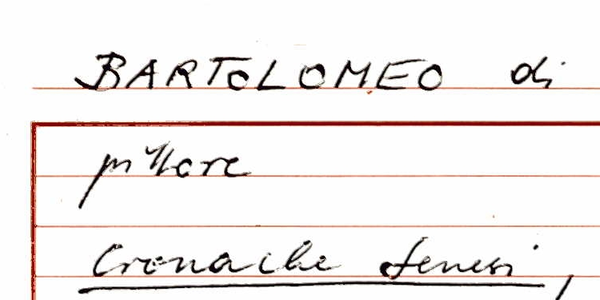 BARTOLOMEO di
pittore
Cronache senesi,